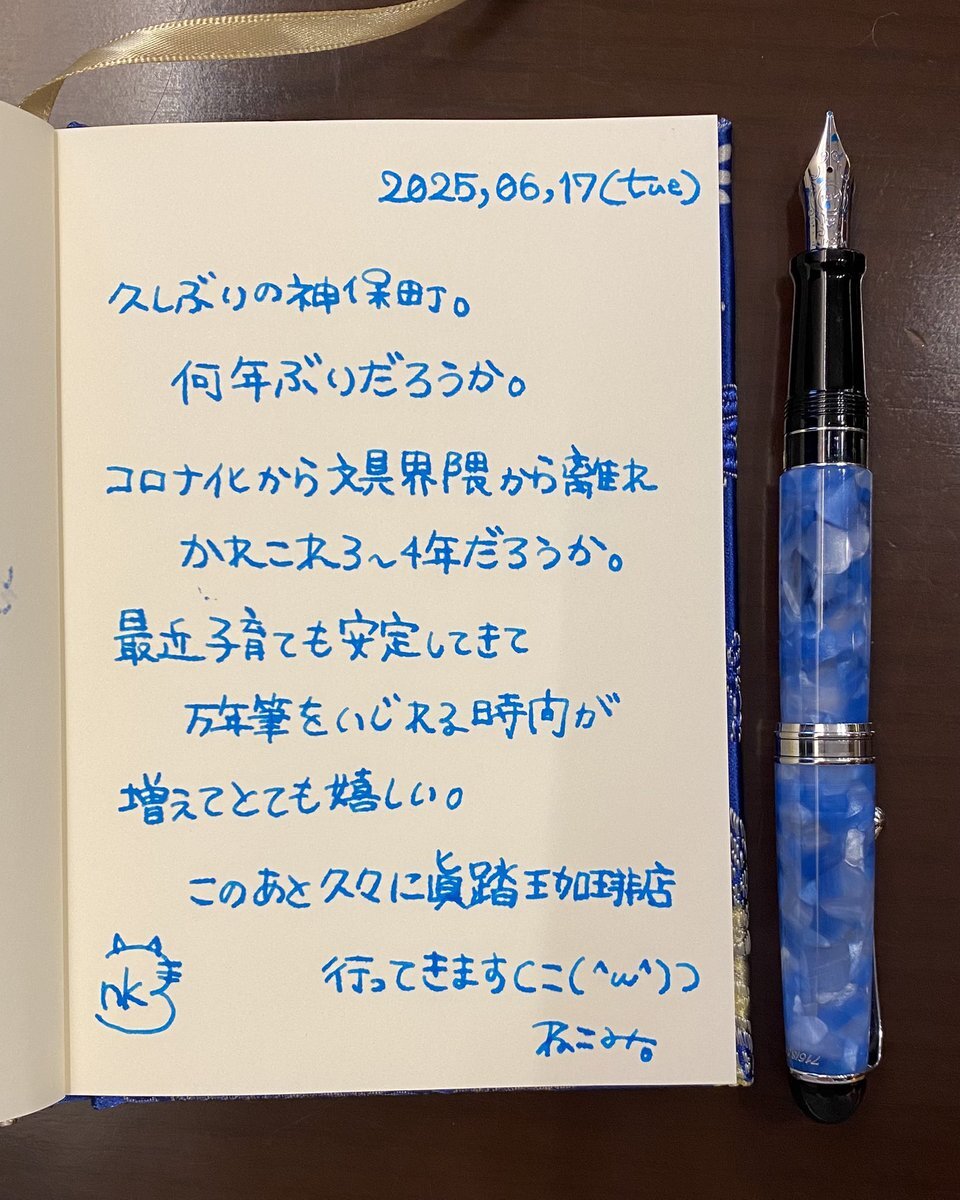 2025,06,17(tue)
久しぶりの神保町。
何年ぶりだろうか。
コロナ化から文具界隈から離れ
かれこれ3〜4年だろうか。
最近子育ても安定してきて
万年筆をいじれる時間が
増えてとても嬉しい。
このあと久々に眞踏珈琲店
行ってきます⊂ニ(^ω^)⊃
ねこみち。
nk